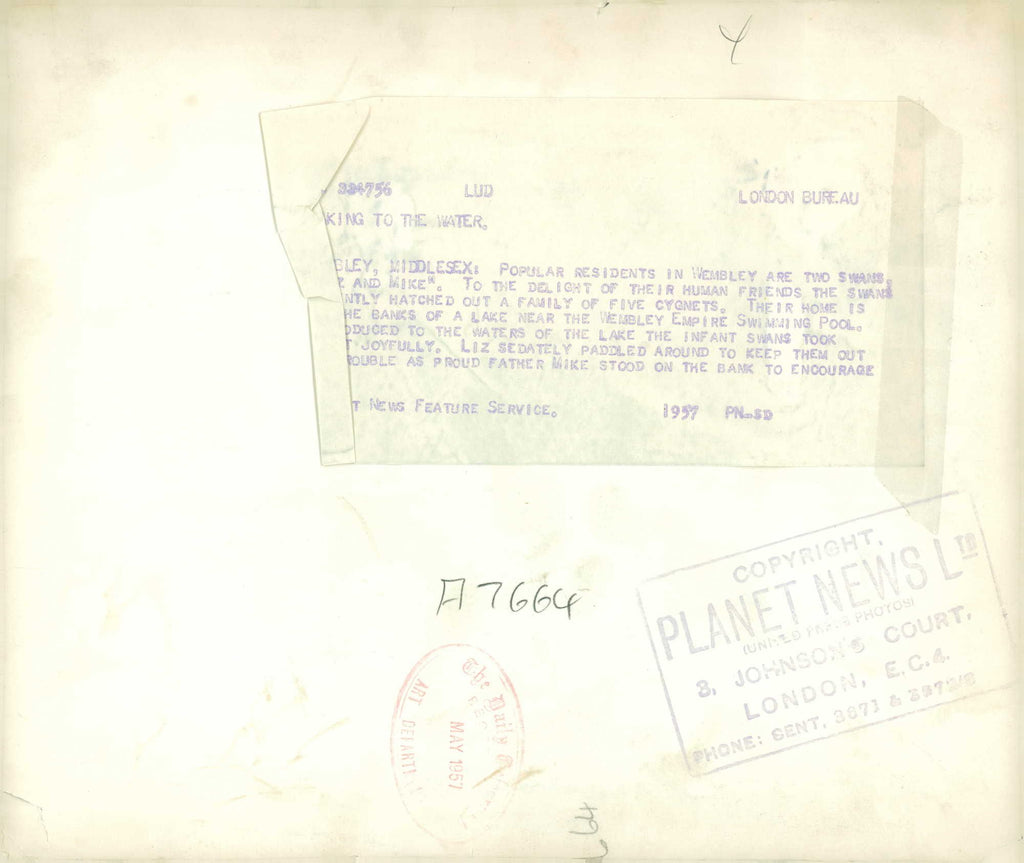 4
334756 LUD LONDON BUREAU
KING TO THE WATER.
BLEY, MIDDLESEX: POPULAR RESIDENTS IN WEMBLEY ARE TWO SWANS,
Z AND MIKE". TO THE DELIGHT OF THEIR HUMAN FRIENDS THE SWANS
NTLY HATCHED OUT A FAMILY OF FIVE CYGNETS. THEIR HOME IS
HE BANKS OF A LAKE NEAR THE WEMBLEY EMPIRE SWIMMING POOL.
ODUCED TO THE WATERS OF THE LAKE THE INFANT SWANS TOOK
T JOYFULLY. LIZ SEDATELY PADDLED AROUND TO KEEP THEM OUT
ROUBLE AS PROUD FATHER MIKE STOOD ON THE BANK TO ENCOURAGE
T NEWS FEATURE SERVICE. 1957 PN-SD
COPYRIGHT,
PLANET NEWS LTD
(UNITED PRESS PHOTOS)
3, JOHNSON'S COURT,
LONDON, E.C.4.
PHONE: CENT. 3871 &
A7664
The Daily
REC
MAY 1957
ART DEPARTM
64